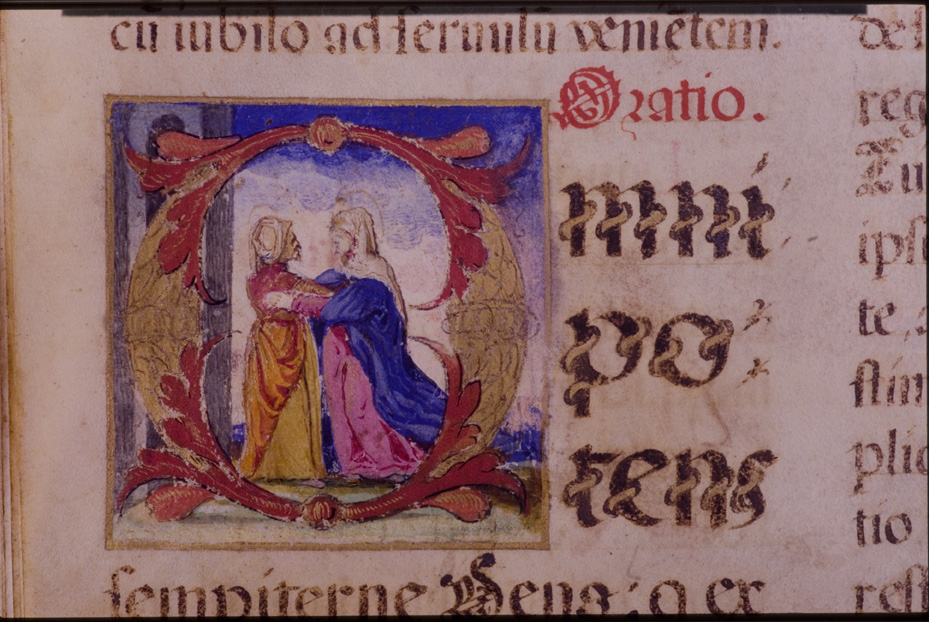 cu iubilo ad seruulu venietem.
Oratio.
Omni
po
tens
sempiterne Deus: q ex
reg
Tu
ipsi
te, s
stim
plic
tio
rest